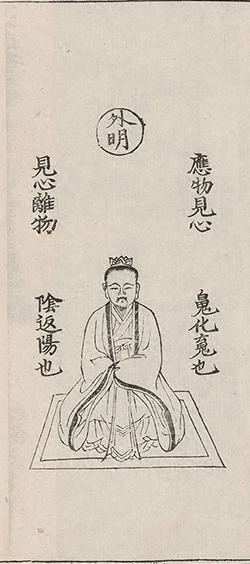 外明
應物見心
魄化魂也
見心離物
陰返陽也